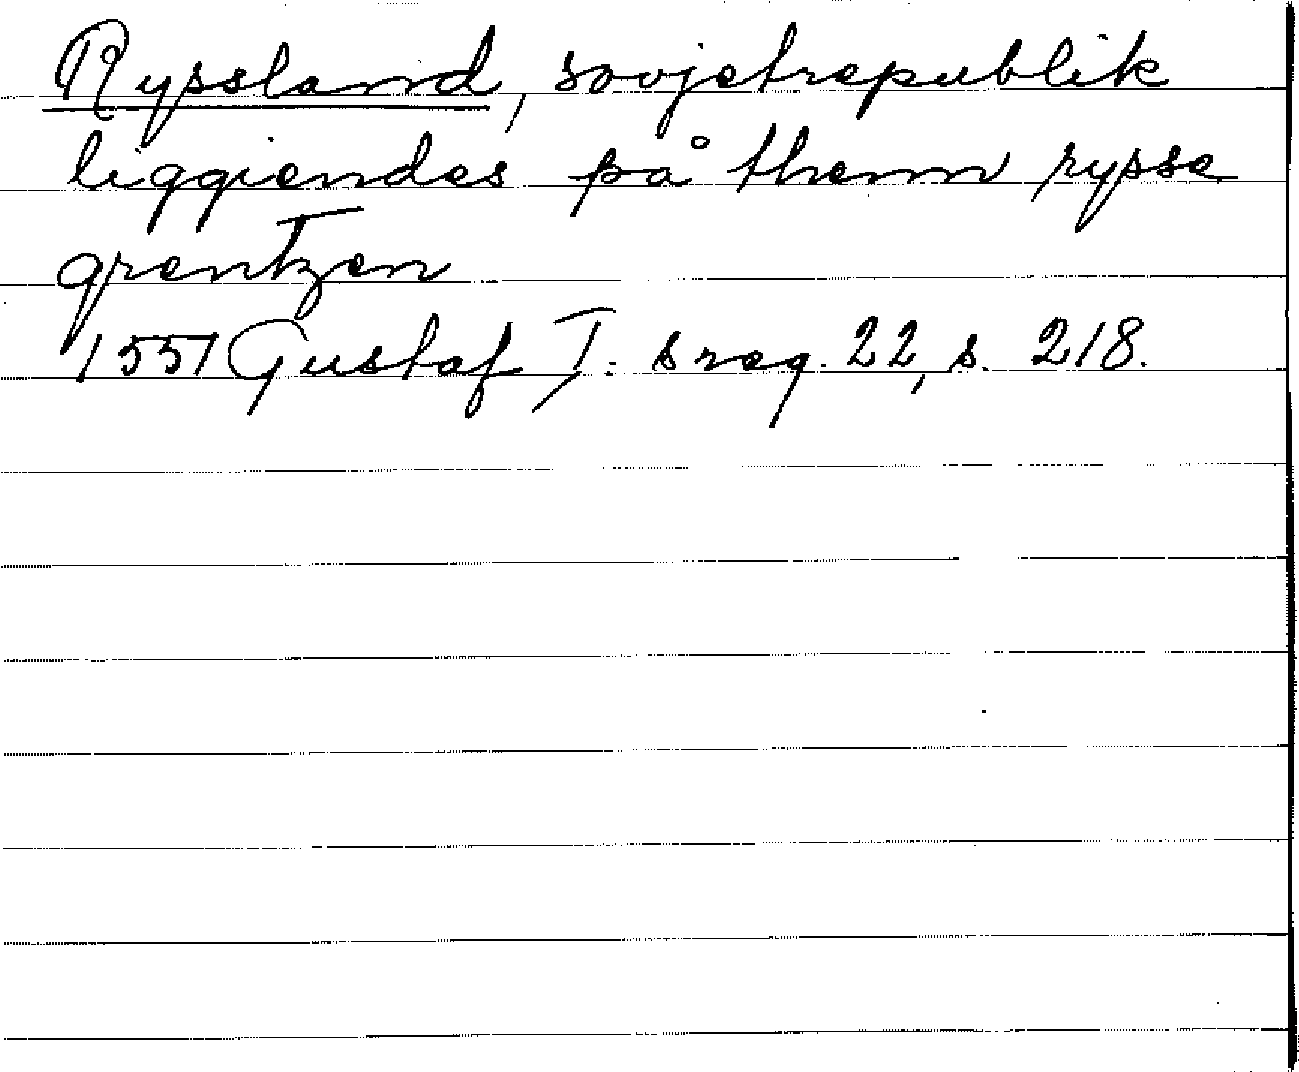 Ryssland, sovjetrepublik
liggiendes på thenn rysse
grentzen
1551 Gustaf I: s reg. 22, s. 218.